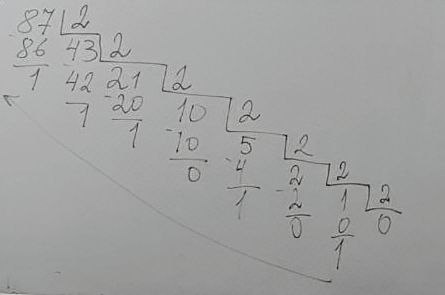 87 2
86 43 2
1 42 21 2
1 -20 10 2
1 -10 5 2
0 -4 2 2
1 -2 1 2
0 0 0
1